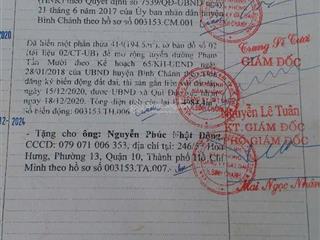 (HNK) theo Quyết định số 7539/QĐ-UBND ngày
21 tháng 6 năm 2017 của Ủy ban nhân dân huyện
Bình Chánh theo hồ sơ số 003153.CM.001
Trang Sĩ Cười
GIÁM ĐỐC
Đã hiến một phần thửa 41-1 (194.5m²), tờ bản đồ số 02
(tài liệu 02/CT-UB) để mở rộng tuyến đường Phạm
Tấn Mười theo Kế hoạch 65/KH-UBND ngày
28/01/2018 của UBND huyện Bình Chánh theo
đăng ký biến động đất đai, tài sản gắn liền với đất
15/12/2020, được UBND xã Qui Đức ngày
ngày 18/12/2020. Tổng diện tích còn lại là
biến động: 003153.TH.006
/2020
Nguyễn Lê Tuân
KT. GIÁM ĐỐC
PHÓ GIÁM ĐỐC
-12-2024
- Tặng cho ông: Nguyễn Phúc Nhật Đông
CCCD: 079 071 006 353, địa chỉ tại: 246/5 Hòa
Hưng, Phường 13, Quận 10, Thành phố Hồ Chí
Minh theo hồ sơ số 003153.TA.007.
Mai Ngọc Nhân